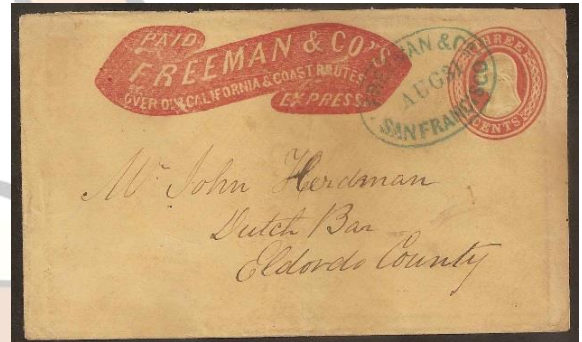 PAID
FREEMAN & CO'S
OVER OUR CALIFORNIA & COAST ROUTES
EXPRESS
FREEMAN & CO
AUG 31
SAN FRANCISCO
THREE
CENTS
Mr John Herdman
Dutch Bar
Eldordo County